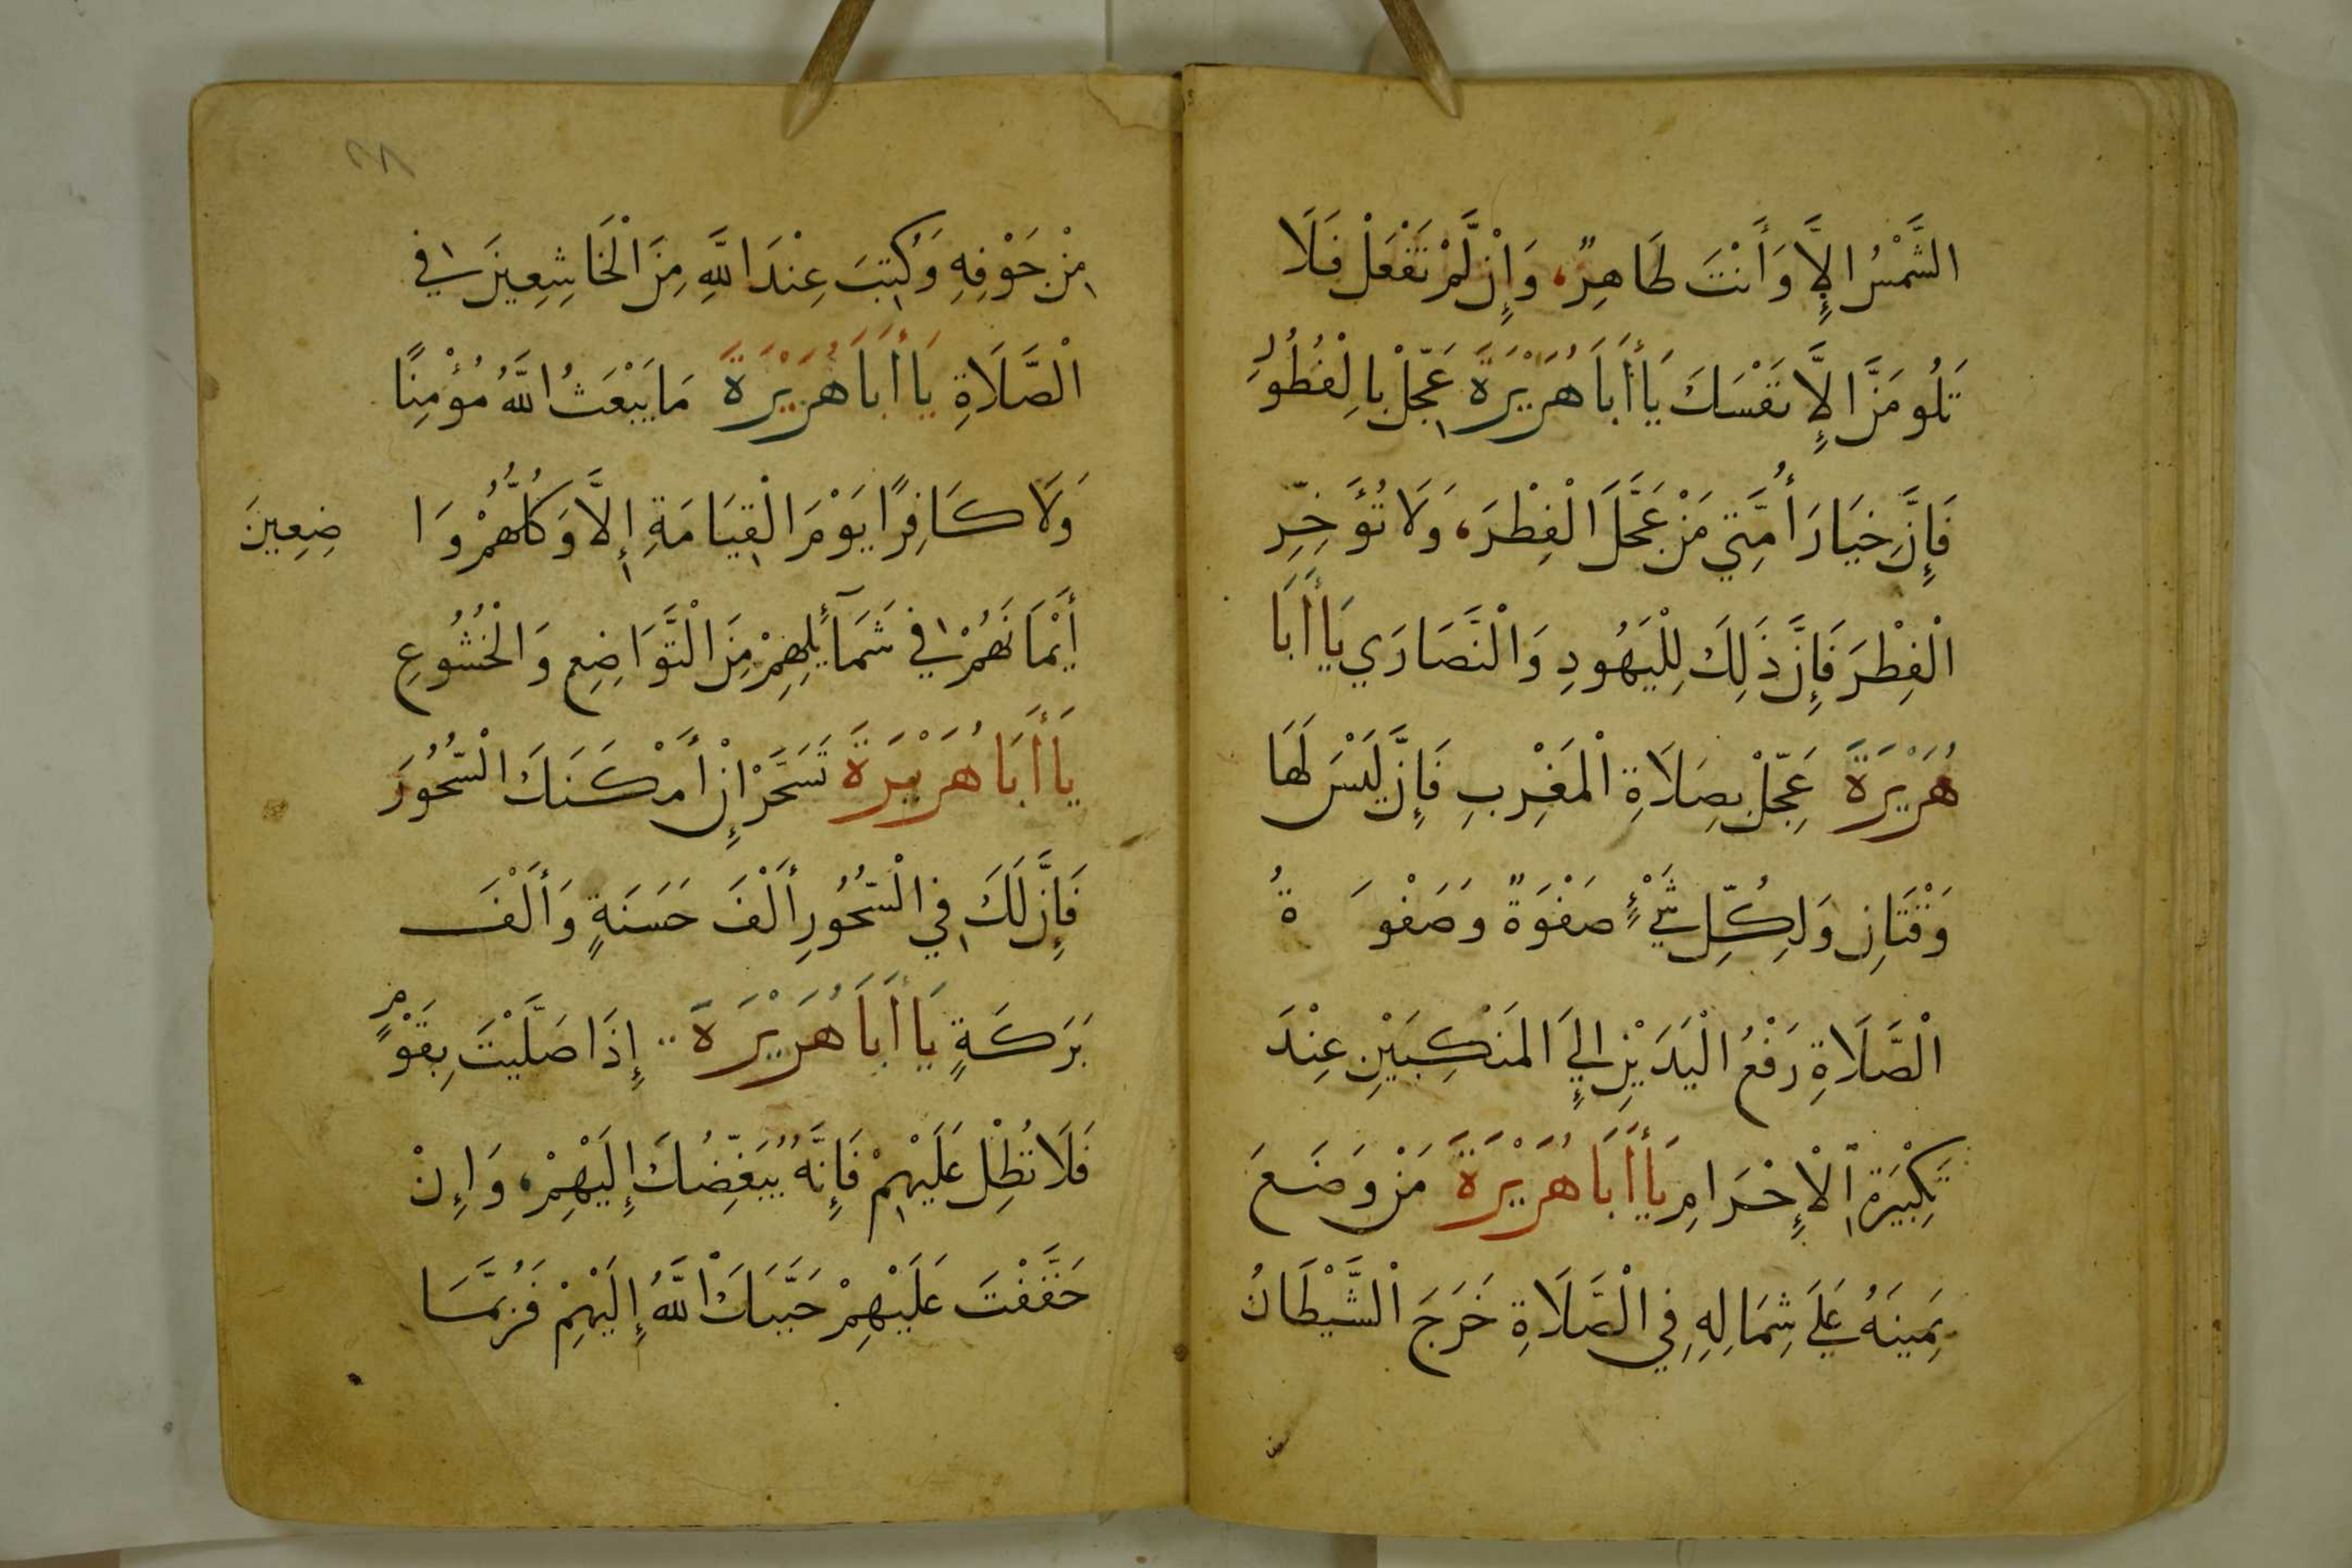 الشَّمْسُ إِلَّا وَأَنْتَ طَاهِرٌ، وَإِنْ لَمْ تَفْعَلْ فَلَا
تَلُومَنَّ إِلَّا نَفْسَكَ يَا أَبَا هُرَيْرَةَ عَجِّلْ بِالْفُطُورِ
فَإِنَّ خِيَارَ أُمَّتِي مَنْ عَجَّلَ الْفِطْرَ، وَلَا تُؤَخِّرِ
الْفِطْرَ فَإِنَّ ذَلِكَ لِلْيَهُودِ وَالْنَّصَارَي يَا أَبَا
هُرَيْرَةَ عَجِّلْ بِصَلَاةِ الْمَغْرِبِ فَإِنْ لَيْسَ لَهَا
وَقْتَانِ وَلِكُلِّ شَيْءٍ صَفْوَةً وَصَفْوَةُ
الْصَّلَاةِ رَفْعُ الْيَدَيْنِ إِلَي الْمَنْكِبَيْنِ عِنْدَ
تَكْبِيْرَةِ الْإِحْرَامِ يَا أَبَا هُرَيْرَةَ مَنْ وَضَعَ
يَمِينَهُ عَلَي شِمَالِهِ فِي الْصَّلَاةِ خَرَجَ الْشَّيْطَانُ
مِنْ جَوْفِهِ وَكُتِبَ عِنْدَ اللَّهِ مِنَ الْخَاشِعِينَ فِي
الْصَّلَاةِ يَا أَبَا هُرَيْرَةَ مَا يَبْعَثُ اللَّهُ مُؤْمِنًا
وَلَا كَافِرًا يَوْمَ الْقِيَامَةِ إِلَّا وَكُلُّهُمْ وَا ضِعِينَ
أَيْمَانَهُمْ فِي شَمَآئِلِهِمْ مِنَ الْتَّوَاضِعِ وَالْخُشُوعِ
يَا أَبَا هُرَيْرَةَ تَسَحَّرْ إِنْ أَمْكَنَكَ الْسُّحُورَ
فَإِنَّ لَكَ فِي الْسُّحُورِ أَلْفَ حَسَنَةٍ وَأَلْفَ
بَرَكَةٍ يَا أَبَا هُرَيْرَةَ إِذَا صَلَّيْتَ بِقَوْمٍ
فَلَا تُطِلْ عَلَيْهِمْ فَإِنَّهُ يُبَغِّضُكَ إِلَيْهِمْ، وَإِنْ
خَفَّفْتَ عَلَيْهِمْ حَبَّبَكَ اللَّهُ إِلَيْهِمْ فَرُبَّمَا